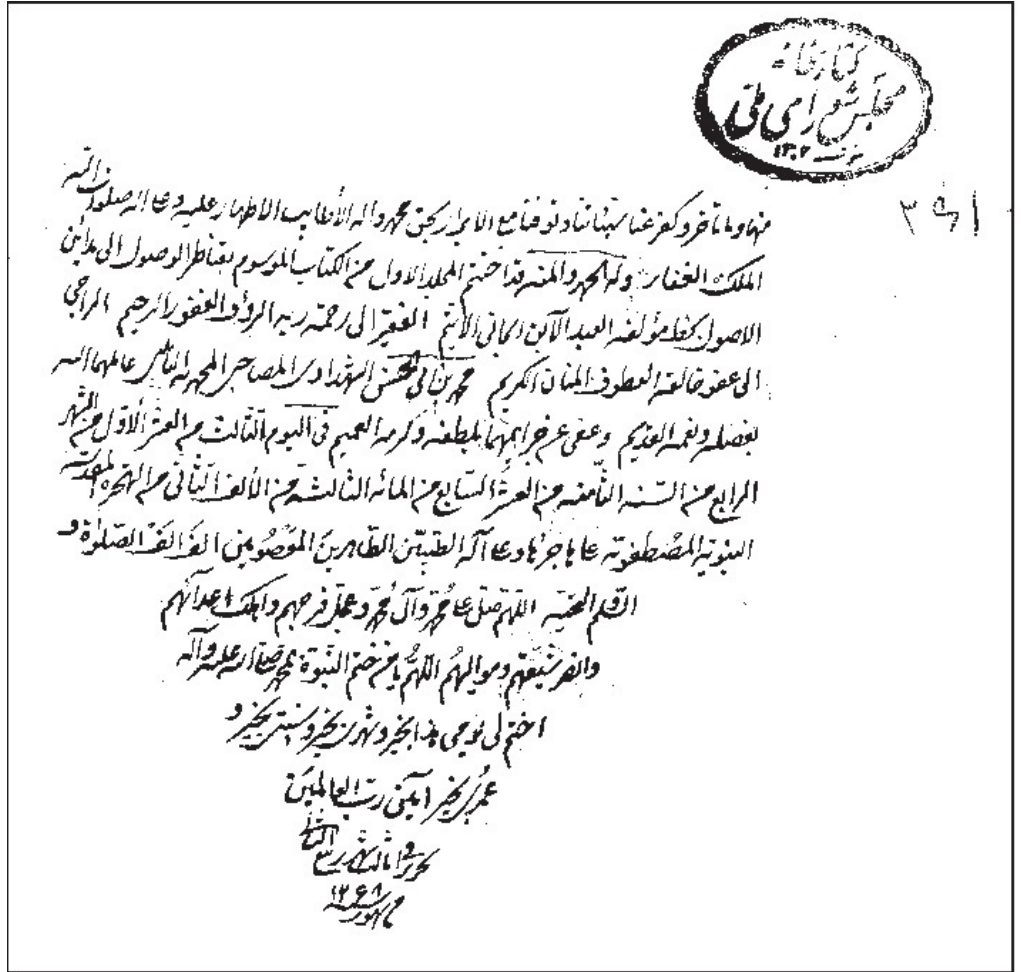 كتابخانه
مجلس شورای ملی
١٣٠٢
منها وما تأخر وكفر عنا سيئاتنا وتوفنا مع الابرار بحق محمد واله الأطايب الاطهار عليه وعلى اله صلوات الله
الملك الغفار وله الحمد والمنه قد اختتم المجلد الاول من الكتاب الموسوم بقناطر الوصول الى مداين
الاصول بخط مؤلفه العبد الآبق الجاني الأثيم الفقير الى رحمة ربه الرؤف الغفور الرحيم الراجي
الى عفو خالقه العطوف المنان الكريم محمد بن الحسن عاملهما الله
بفضله ونعمه القديم وعفى عن جرايمهما بلطفه وكرمه العميم فى اليوم الثالث من العشر الأول من الشهر
الرابع من السنه الثامنه من العشر السابع من المائه الثالثه من الألف الثاني من الهجره المقدسه
النبويه المصطفويه على هاجرها وعلى آله الطيبين الطاهرين المعصومين الف الف الصلوة و
التحيه اللهم صل على محمد وآل محمد وعجل فرجهم واهلك اعدائهم
وانصر شيعتهم ومواليهم اللهم يا من ختم النبوة بمحمد صلى الله عليه وآله
اختم لى يومى هذا بخير وشهرى بخير وسنتى بخير و
عمرى بخير آمين رب العالمين
شهر ربيع الثانى
١٢٦٨